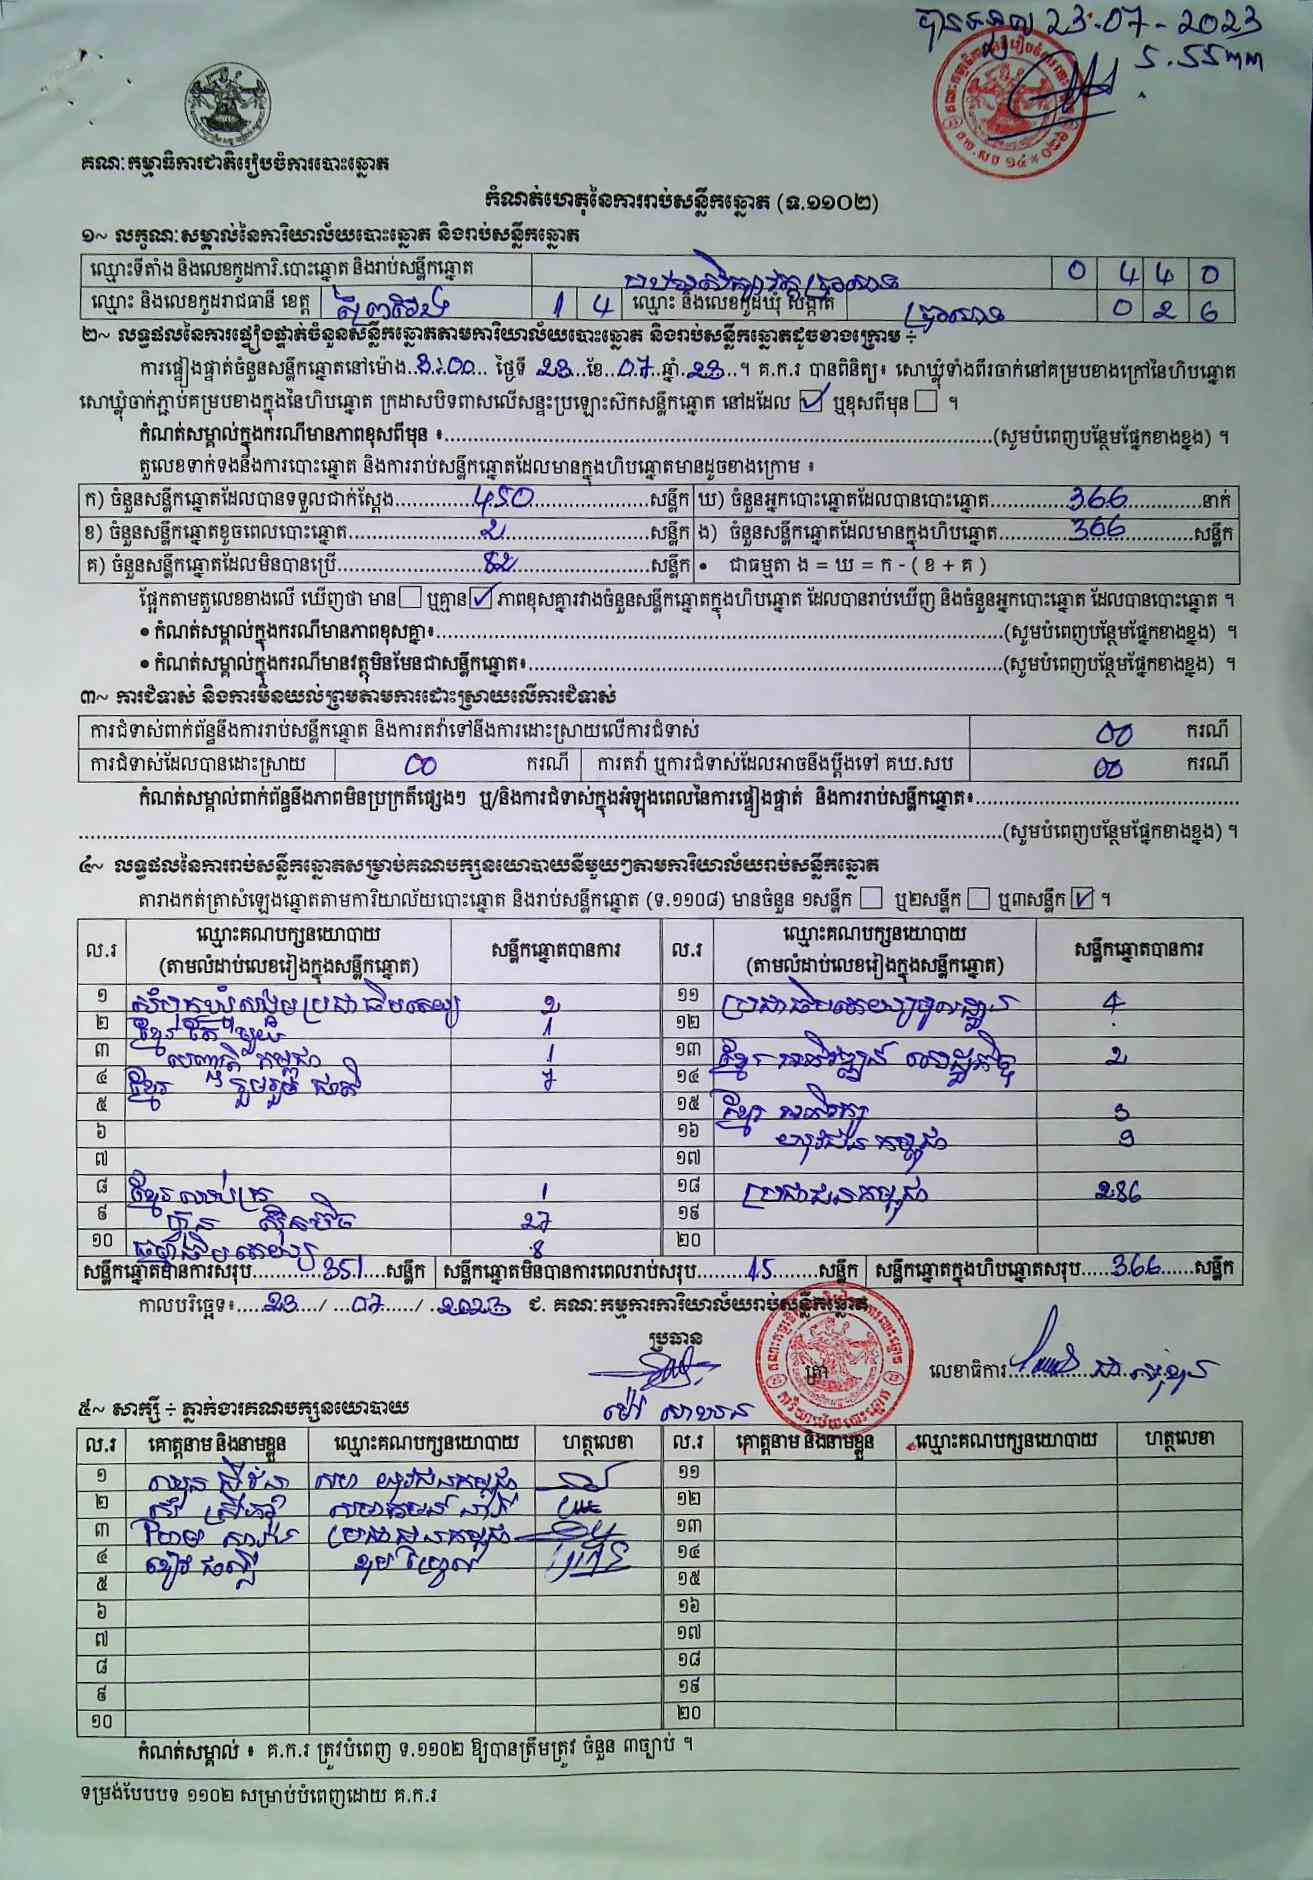 បានទទួល 23-07-2023
គណៈកម្មាធិការជាតិរៀបចំការបោះឆ្នោត
កំណត់ហេតុនៃការរាប់សន្លឹកឆ្នោត (ទ.១១០២)
១~ លក្ខណៈសម្គាល់នៃការិយាល័យបោះឆ្នោត និងរាប់សន្លឹកឆ្នោត
ឈ្មោះទីតាំង និងលេខកូដការិ.បោះឆ្នោត និងរាប់សន្លឹកឆ្នោត 0 4 4 0
ឈ្មោះ និងលេខកូដរាជធានី ខេត្ត ព្រៃវែង 1 4 ឈ្មោះ និងលេខកូដឃុំ សង្កាត់ 0 2 6
២~ លទ្ធផលនៃការផ្ទៀងផ្ទាត់ចំនួនសន្លឹកឆ្នោតតាមការិយាល័យបោះឆ្នោត និងរាប់សន្លឹកឆ្នោតដូចខាងក្រោម ÷
ការផ្ទៀងផ្ទាត់ចំនួនសន្លឹកឆ្នោតនៅម៉ោង..3:00... ថ្ងៃទី 23...ខែ..07..ឆ្នាំ.23..។ គ.ក.រ បានពិនិត្យ៖ សោឃ្លុំទាំងពីរចាក់នៅគម្របខាងក្រៅនៃហិបឆ្នោត
សោឃ្លុំចាក់ភ្ជាប់គម្របខាងក្នុងនៃហិបឆ្នោត ក្រដាសបិទពាសលើសន្ទះប្រឡោះស៊កសន្លឹកឆ្នោត នៅដដែល ☑ ឬខុសពីមុន ☐ ។
កំណត់សម្គាល់ក្នុងករណីមានភាពខុសពីមុន ៖........(សូមបំពេញបន្ថែមផ្នែកខាងខ្នង) ។
តួលេខទាក់ទងនឹងការបោះឆ្នោត និងការរាប់សន្លឹកឆ្នោតដែលមានក្នុងហិបឆ្នោតមានដូចខាងក្រោម ៖
ក) ចំនួនសន្លឹកឆ្នោតដែលបានទទួលជាក់ស្តែង........450........សន្លឹក ឃ) ចំនួនអ្នកបោះឆ្នោតដែលបានបោះឆ្នោត........366........នាក់
ខ) ចំនួនសន្លឹកឆ្នោតខូចពេលបោះឆ្នោត........2........សន្លឹក ង) ចំនួនសន្លឹកឆ្នោតដែលមានក្នុងហិបឆ្នោត........366........សន្លឹក
គ) ចំនួនសន្លឹកឆ្នោតដែលមិនបានប្រើ........82........សន្លឹក • ជាធម្មតា ង = ឃ = ក - ( ខ + គ )
ផ្អែកតាមតួលេខខាងលើ ឃើញថា មាន☐ ឬគ្មាន☑ ភាពខុសគ្នារវាងចំនួនសន្លឹកឆ្នោតក្នុងហិបឆ្នោត ដែលបានរាប់ឃើញ និងចំនួនអ្នកបោះឆ្នោត ដែលបានបោះឆ្នោត ។
• កំណត់សម្គាល់ក្នុងករណីមានភាពខុសគ្នា៖........(សូមបំពេញបន្ថែមផ្នែកខាងខ្នង) ។
• កំណត់សម្គាល់ក្នុងករណីមានវត្ថុមិនមែនជាសន្លឹកឆ្នោត៖........(សូមបំពេញបន្ថែមផ្នែកខាងខ្នង) ។
៣~ ការជំទាស់ និងការមិនយល់ព្រមតាមការដោះស្រាយលើការជំទាស់
ការជំទាស់ពាក់ព័ន្ធនឹងការរាប់សន្លឹកឆ្នោត និងការតវ៉ាទៅនឹងការដោះស្រាយលើការជំទាស់ 00 ករណី
ការជំទាស់ដែលបានដោះស្រាយ 00 ករណី ការតវ៉ា ឬការជំទាស់ដែលអាចនឹងប្តឹងទៅ គឃ.សប 00 ករណី
កំណត់សម្គាល់ពាក់ព័ន្ធនឹងភាពមិនប្រក្រតីផ្សេងៗ ឬ/និងការជំទាស់ក្នុងអំឡុងពេលនៃការផ្ទៀងផ្ទាត់ និងការរាប់សន្លឹកឆ្នោត៖........
........(សូមបំពេញបន្ថែមផ្នែកខាងខ្នង) ។
៤~ លទ្ធផលនៃការរាប់សន្លឹកឆ្នោតសម្រាប់គណបក្សនយោបាយនីមួយៗតាមការិយាល័យរាប់សន្លឹកឆ្នោត
តារាងកត់ត្រាសំឡេងឆ្នោតតាមការិយាល័យបោះឆ្នោត និងរាប់សន្លឹកឆ្នោត (ទ.១១០៨) មានចំនួន ១សន្លឹក ☐ ឬ២សន្លឹក ☐ ឬ៣សន្លឹក ☑ ។
ល.រ ឈ្មោះគណបក្សនយោបាយ (តាមលំដាប់លេខរៀងក្នុងសន្លឹកឆ្នោត) សន្លឹកឆ្នោតបានការ ល.រ ឈ្មោះគណបក្សនយោបាយ (តាមលំដាប់លេខរៀងក្នុងសន្លឹកឆ្នោត) សន្លឹកឆ្នោតបានការ
១ សំបុកឃ្មុំសង្គមប្រជាធិបតេយ្យ 2 ១១ ប្រជាធិបតេយ្យមូលដ្ឋាន 4
២ ខ្មែរតែមួយ 1 ១២
៣ បញ្ញាត្តិកម្ពុជា 1 ១៣ ខ្មែរអភិវឌ្ឍន៍សេដ្ឋកិច្ច 2
៤ ខ្មែររួបរួមជាតិ 7 ១៤
៥ ១៥ ខ្មែរអភិរក្ស 3
៦ ១៦ យុវជនកម្ពុជា 9
៧ ១៧
៨ ខ្មែរឈប់ក្រ 1 ១៨ ប្រជាជនកម្ពុជា 286
៩ ហ៊្វុនស៊ិនប៉ិច 27 ១៩
១០ ធម្មាធិបតេយ្យ 8 ២០
សន្លឹកឆ្នោតបានការសរុប........351....សន្លឹក សន្លឹកឆ្នោតមិនបានការពេលរាប់សរុប........15.......សន្លឹក សន្លឹកឆ្នោតក្នុងហិបឆ្នោតសរុប.....366......សន្លឹក
កាលបរិច្ឆេទ៖.....23..../...07...../..2023 ជ. គណៈកម្មការការិយាល័យរាប់សន្លឹកឆ្នោត
ប្រធាន
ត្រា
លេខាធិការ
៥~ សាក្សី ÷ ភ្នាក់ងារគណបក្សនយោបាយ
ល.រ គោត្តនាម និងនាមខ្លួន ឈ្មោះគណបក្សនយោបាយ ហត្ថលេខា ល.រ គោត្តនាម និងនាមខ្លួន ឈ្មោះគណបក្សនយោបាយ ហត្ថលេខា
១ យុវជនកម្ពុជា ១១
២ ១២
៣ ប្រជាជនកម្ពុជា ១៣
៤ ១៤
៥ ១៥
៦ ១៦
៧ ១៧
៨ ១៨
៩ ១៩
១០ ២០
កំណត់សម្គាល់ ៖ គ.ក.រ ត្រូវបំពេញ ទ.១១០២ ឱ្យបានត្រឹមត្រូវ ចំនួន ៣ច្បាប់ ។
ទម្រង់បែបបទ ១១០២ សម្រាប់បំពេញដោយ គ.ក.រ